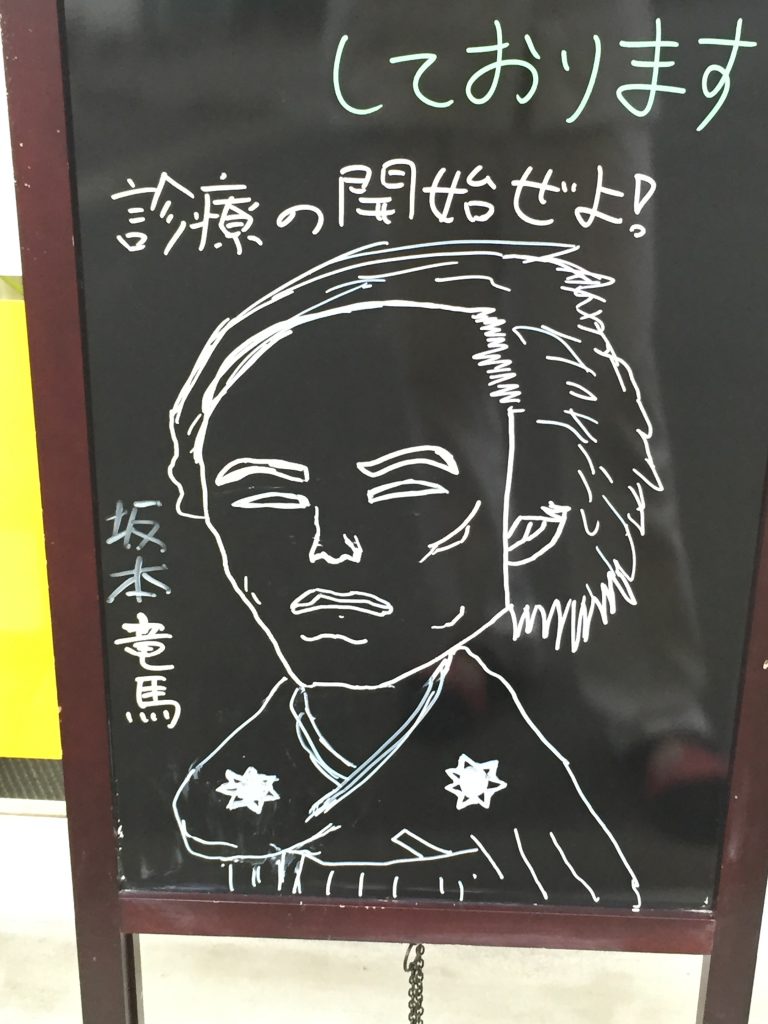 しております
診療の開始ぜよ!
坂本竜馬